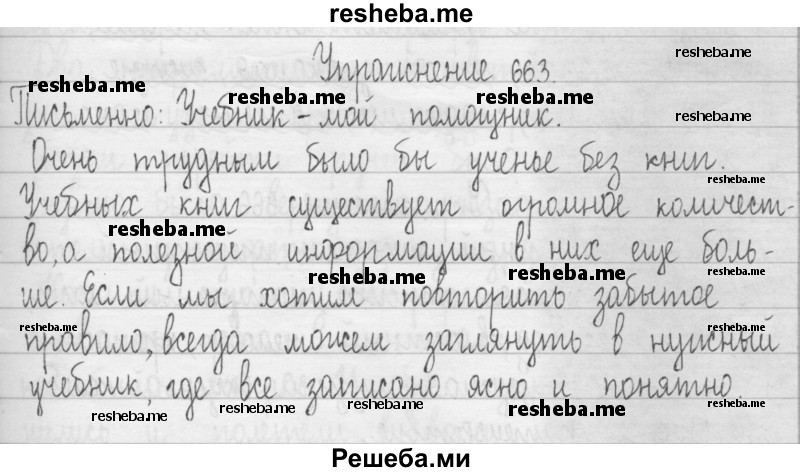 resheba.me
Упражнение 663.
resheba.me
resheba.me resheba.me resheba.me
Письменно: Учебник - мой помощник.
resheba.me
Очень трудным было бы ученье без книг.
resheba.me
Учебных книг существует огромное количест-
resheba.me resheba.me
во, а полезной информации в них еще боль-
resheba.me resheba.me resheba.me
ше. Если мы хотим повторить забытое
resheba.me resheba.me resheba.me resheba.me
правило, всегда можем заглянуть в нужный
учебник, где все записано ясно и понятно.
resheba.me resheba.me resheba.me resheba.me resheba.me
Решеба.ми